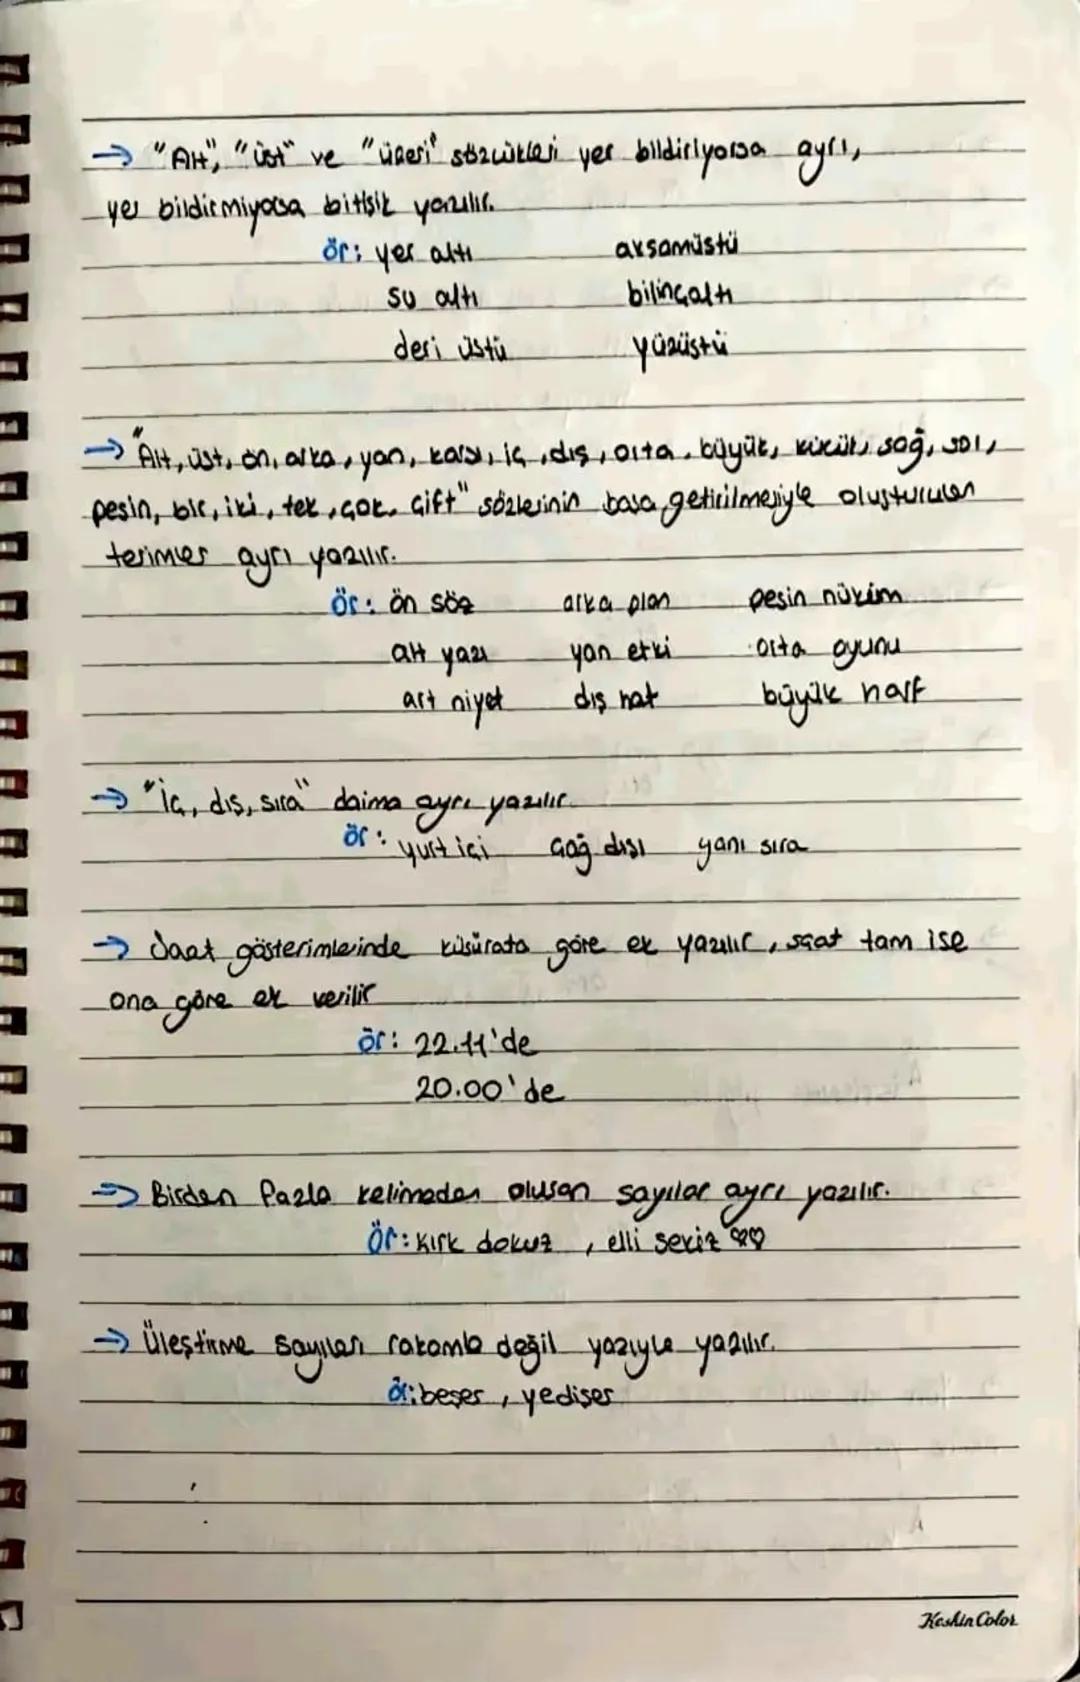 → "Alt", "üst" ve "üzeri" sözcükleri yer bildiriyorsa ayrı,
yer bildirmiyorsa bitişik yazılır.
ör: yer altı akşamüstü
su altı bilinçaltı
deri üstü yüzüstü
→ "Alt, üst, ön, arka, yan, karşı, iç, dış, orta, büyük, küçük, sağ, sol,
peşin, bir, iki, tek, çok, çift" sözlerinin başa getirilmesiyle oluşturulan
terimler ayrı yazılır.
Ör: ön söz arka plan peşin hüküm
alt yazı yan etki orta oyunu
art niyet dış hat büyük harf
→ "İç, dış, sıra" daima ayrı yazılır.
ör: yurt içi çağ dışı yanı sıra
→ Saat gösterimlerinde küsürata göre ek yazılır, saat tam ise
ona göre ek verilir
ör: 22.11'de
20.00'de
→ Birden fazla kelimeden oluşan sayılar ayrı yazılır.
Ör: kırk dokuz, elli sekiz ♡♡
→ Üleştirme sayıları rakamla değil yazıyla yazılır.
ör: beşer, yedişer
Keskin Color